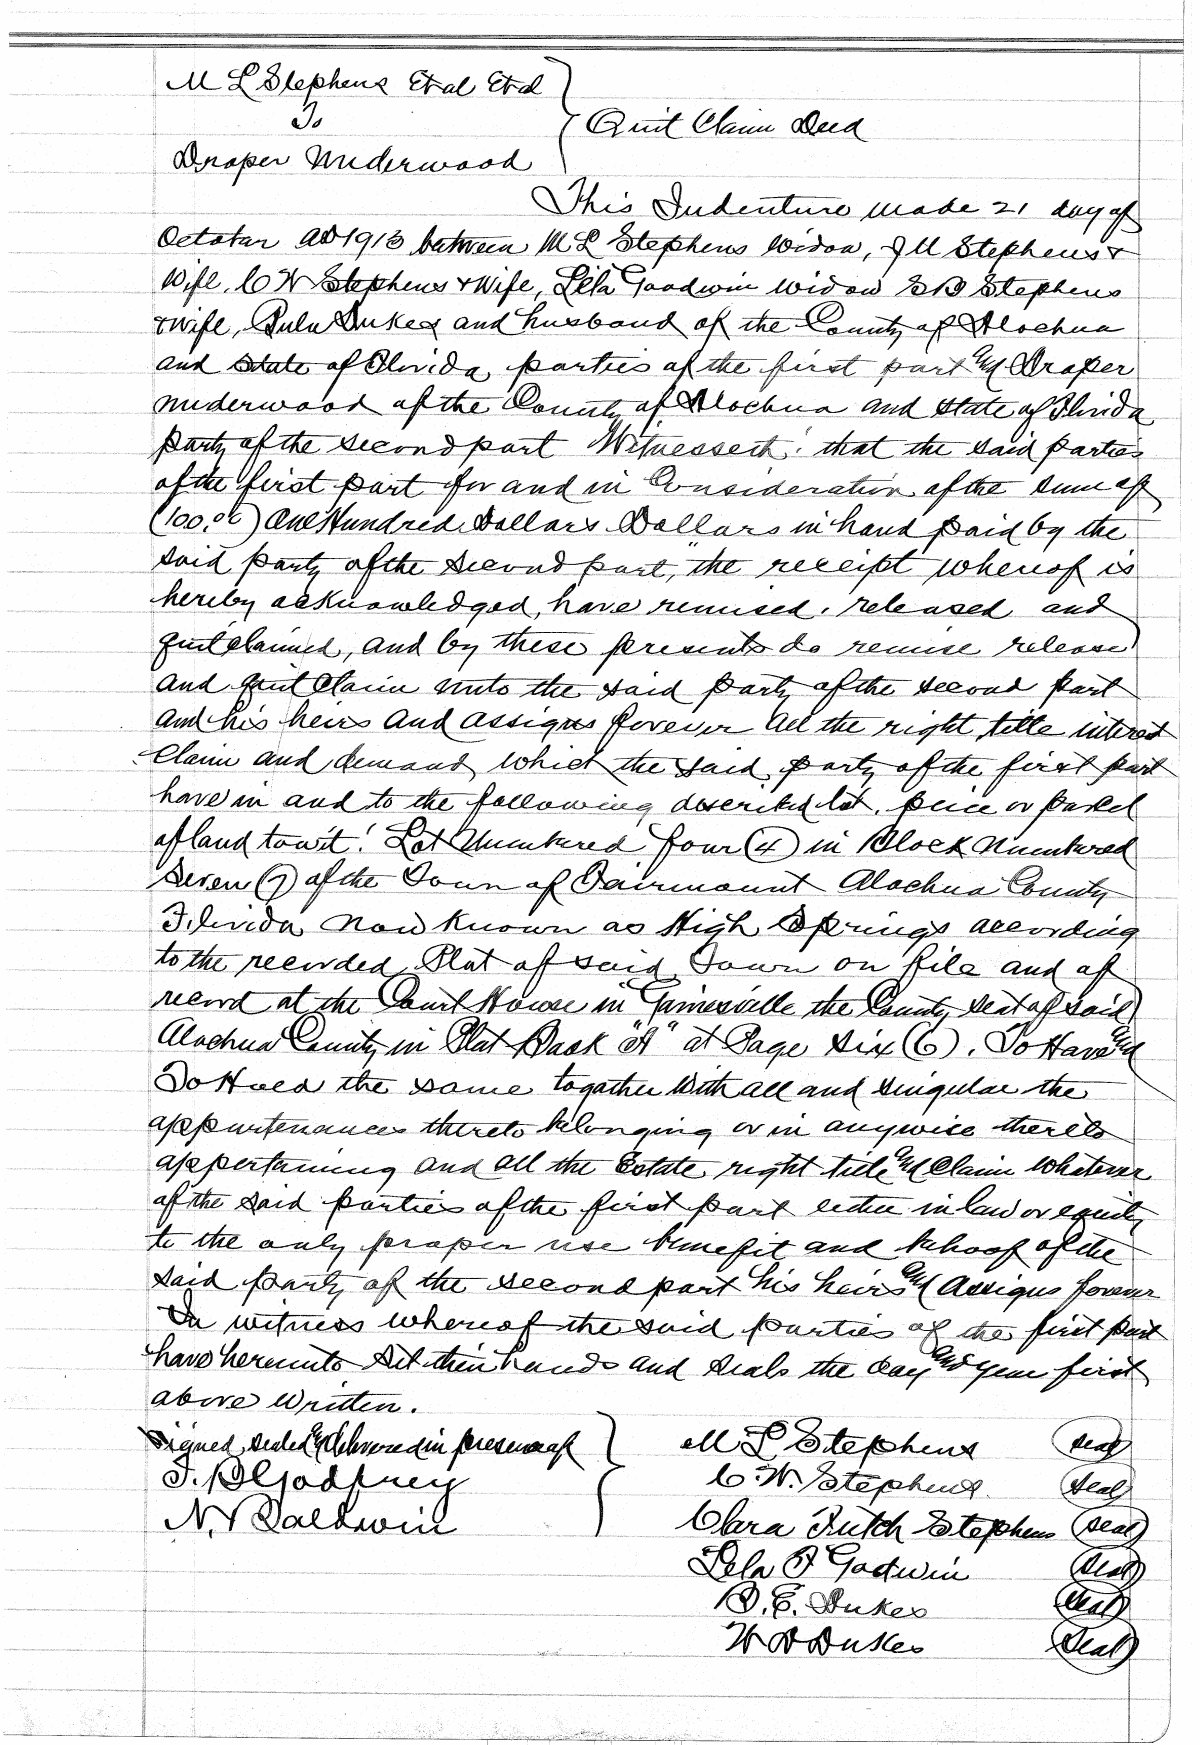 M L Stephens Etal Etal
To
Quit Claim Deed
Draper Underwood
This Indenture made 21 day of
October AD 1913 between M L Stephens Widow, J M Stephens &
Wife, C W Stephens & Wife, Lela Goodwin widow S B Stephens
& wife, Lula Dukes and husband of the County of Alachua
and State of Florida, parties of the first part and Draper
Underwood of the County of Alachua and State of Florida
party of the second part Witnesseth: that the said parties
of the first part for and in Consideration of the sum of
(100.00) One Hundred Dollars Dollars in hand paid by the
said party of the second part, the receipt whereof is
hereby acknowledged, have remised, released and
quit claimed, and by these presents do remise release
and quit Claim unto the said party of the second part
and his heirs and assigns forever all the right, title interest
Claim and demand which the said party of the first part
have in and to the following described lot, piece or parcel
of land towit: Lot Numbered four (4) in Block Numbered
Seven (7) of the Town of Fairmount Alachua County
Florida now known as High Springs according
to the recorded Plat of said Town on file and of
record at the Court House in Gainesville the County seat of said
Alachua County in Plat Book "A" at Page Six (6). To Have and
To Hoed the same togather with all and singular the
appurtenances thereto belonging or in anywise thereto
appertaining and all the Estate right title and Claim whatever
of the said parties of the first part either in law or equity
to the only proper use benefit and behoof of the
said party of the second part his heirs and Assigns forever
In witness whereof the said parties of the first part
have hereunto set their hands and seals the day and year first
above written.
Signed, sealed & delivered in presence of
M L Stephens (seal)
T. B Godfrey
C. W. Stephens (seal)
N. Y Baldwin
Clara Futch Stephens (seal)
Lela F Godwin (seal)
B. E. Dukes (seal)
W D Dukes (seal)